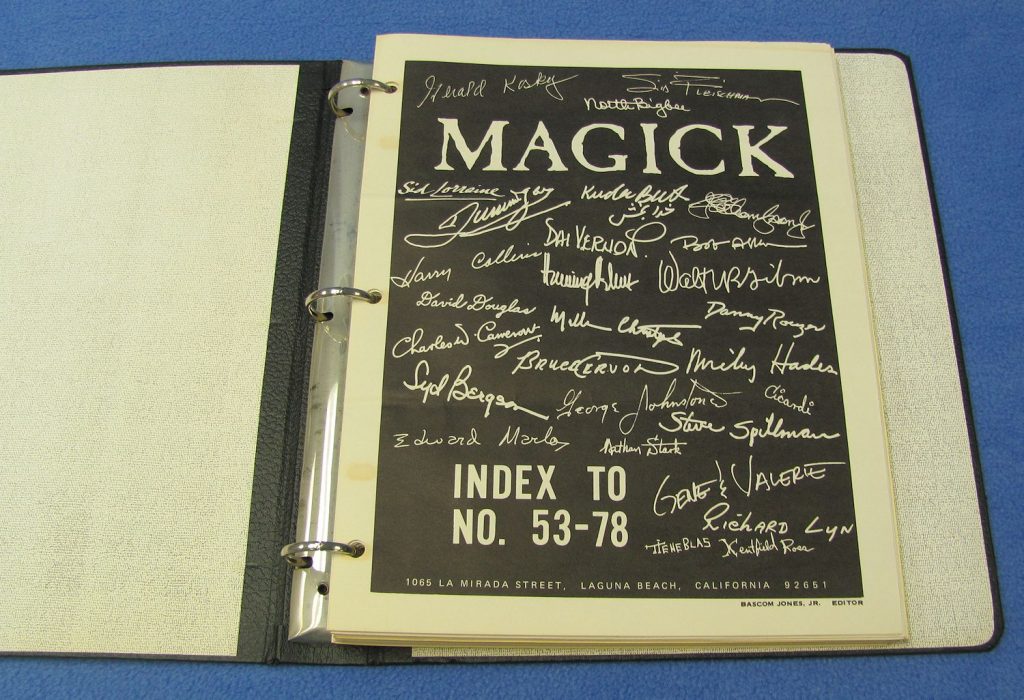 Gerald Kosky
Sid Fleischman
North Bigbee
MAGICK
Sid Lorraine
Kuda Bux
خدا بخش
DAI VERNON
Bob
Harry Collins
Walt B Gibson
David Douglas
Danny Rouzer
Charles W. Cameron
BRUCE CERVON
Mickey Hades
Syd Bergson
George Johnstone
Cicardi
Steve Spillman
Edward Marlo
Nathan Stark
INDEX TO
NO. 53-78
GENE & VALERIE
RICHARD LYN
TENEBLAS
Kentfield Rose
1065 LA MIRADA STREET, LAGUNA BEACH, CALIFORNIA 92651
BASCOM JONES, JR. EDITOR